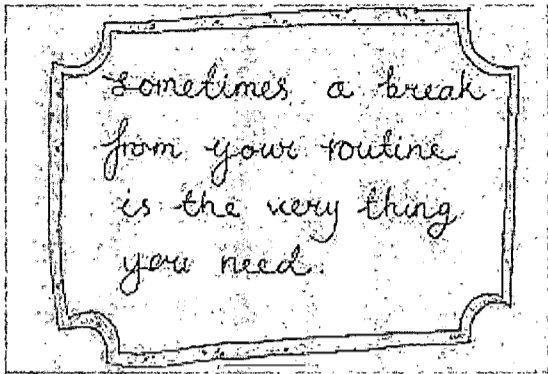 Sometimes a break
from your routine
is the very thing
you need.